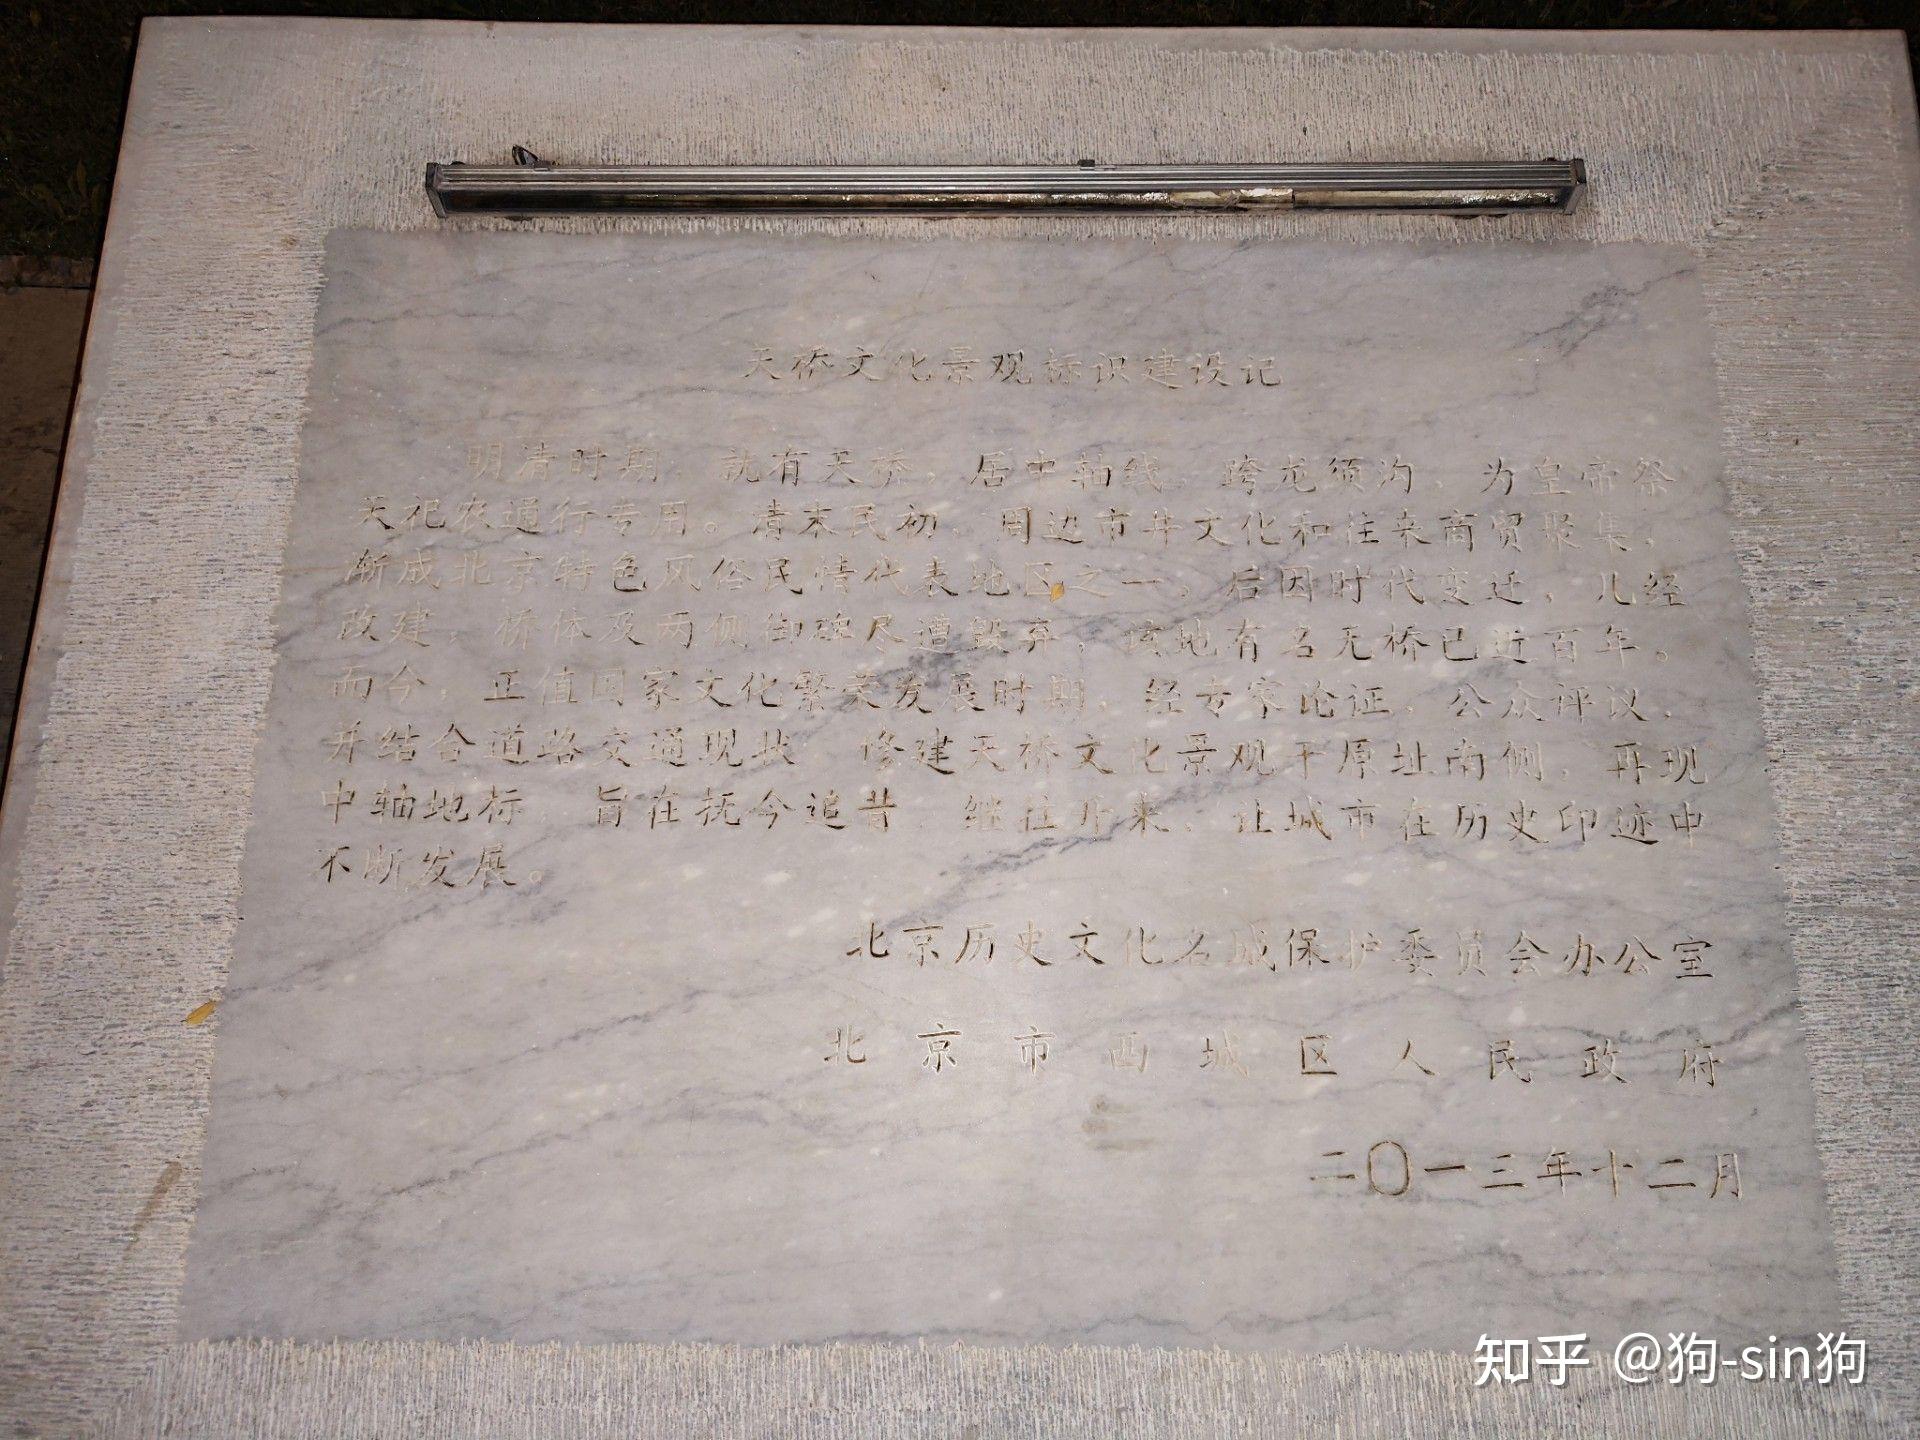 天桥文化景观标识建设记
明清时期，就有天桥，居中轴线，跨龙须沟，为皇帝祭
天祀农通行专用。清末民初，周边市井文化和往来商贸聚集，
渐成北京特色风俗民情代表地区之一。后因时代变迁，几经
改建，桥体及两侧御碑尽遭毁弃，该地有名无桥已近百年。
而今，正值国家文化繁荣发展时期，经专家论证，公众评议，
并结合道路交通现状，修建天桥文化景观于原址南侧，再现
中轴地标，旨在抚今追昔，继往开来，让城市在历史印迹中
不断发展。
北京历史文化名城保护委员会办公室
北京市西城区人民政府
二〇一三年十二月
知乎 @狗-sin狗